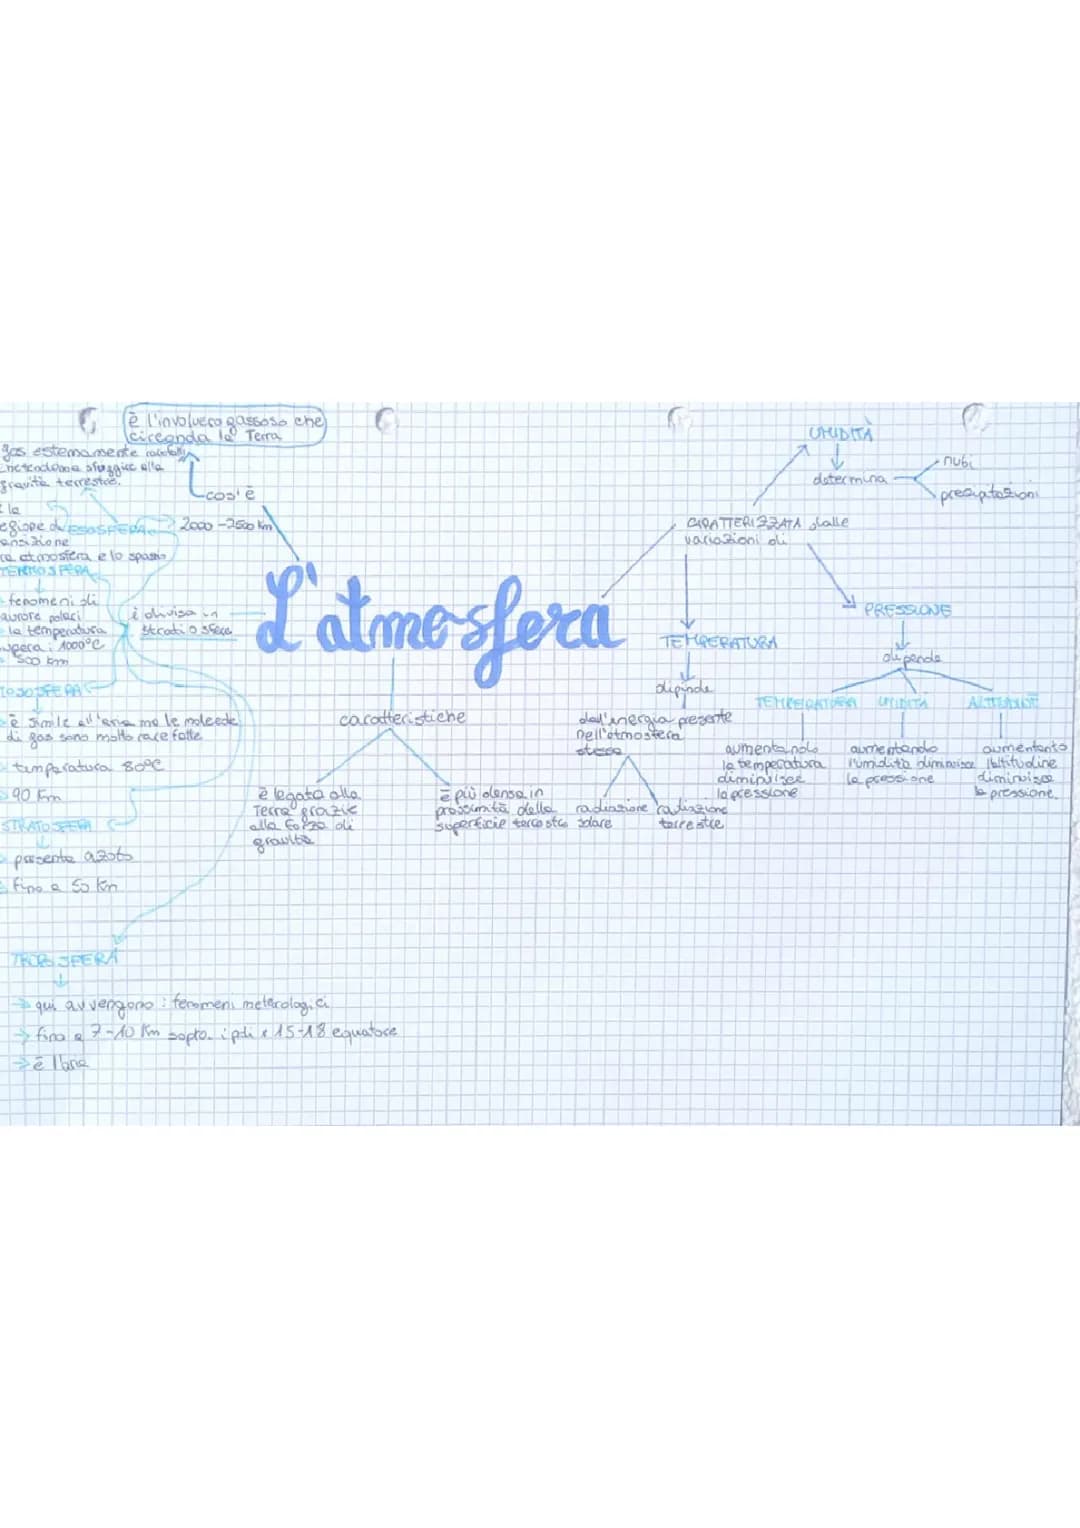 è l'involucro gassoso che
circonda la Terra
cos'è
gas estremamente
sfuggire alla
gravità terrestre.
è la
regione di
ansizione
ra atmosfera e lo spazio
ESOSFERA
2000 - 2500 km
TERMOSFERA
fenomeni di
aurore polari
la temperatura
upera i 1000°C
500 km
è divisa in
strati o sfere
L'atmosfera
OSOSFERA
è simile all'aria ma le molecole
di gas sono molto rarefatte
temperatura 80°C
90 km
STRATOSFERA
presente azoto
fino a 50 km
TROPOSFERA
qui avvengono i fenomeni meterologici
fino a 7-10 km sopra i poli e 15-18 equatore
è l'aria
caratteristiche
è legata alla
Terra grazie
alla forza di
gravità
È più densa in
prossimità della
superficie terrestre
CARATTERIZZATA dalle
variazioni di
UMIDITÀ
determina
nubi
precipitazioni
TEMPERATURA
dipende
dall'energia presente
nell'atmosfera
stessa
radiazione
solare
radiazione
terrestre
PRESSIONE
dipende
TEMPERATURA
aumentando
la temperatura
diminuisce
la pressione
UMIDITÀ
aumentando
l'umidità diminuisce
la pressione
ALTITUDINE
aumentanto
l'altitudine
diminuisce
la pressione.